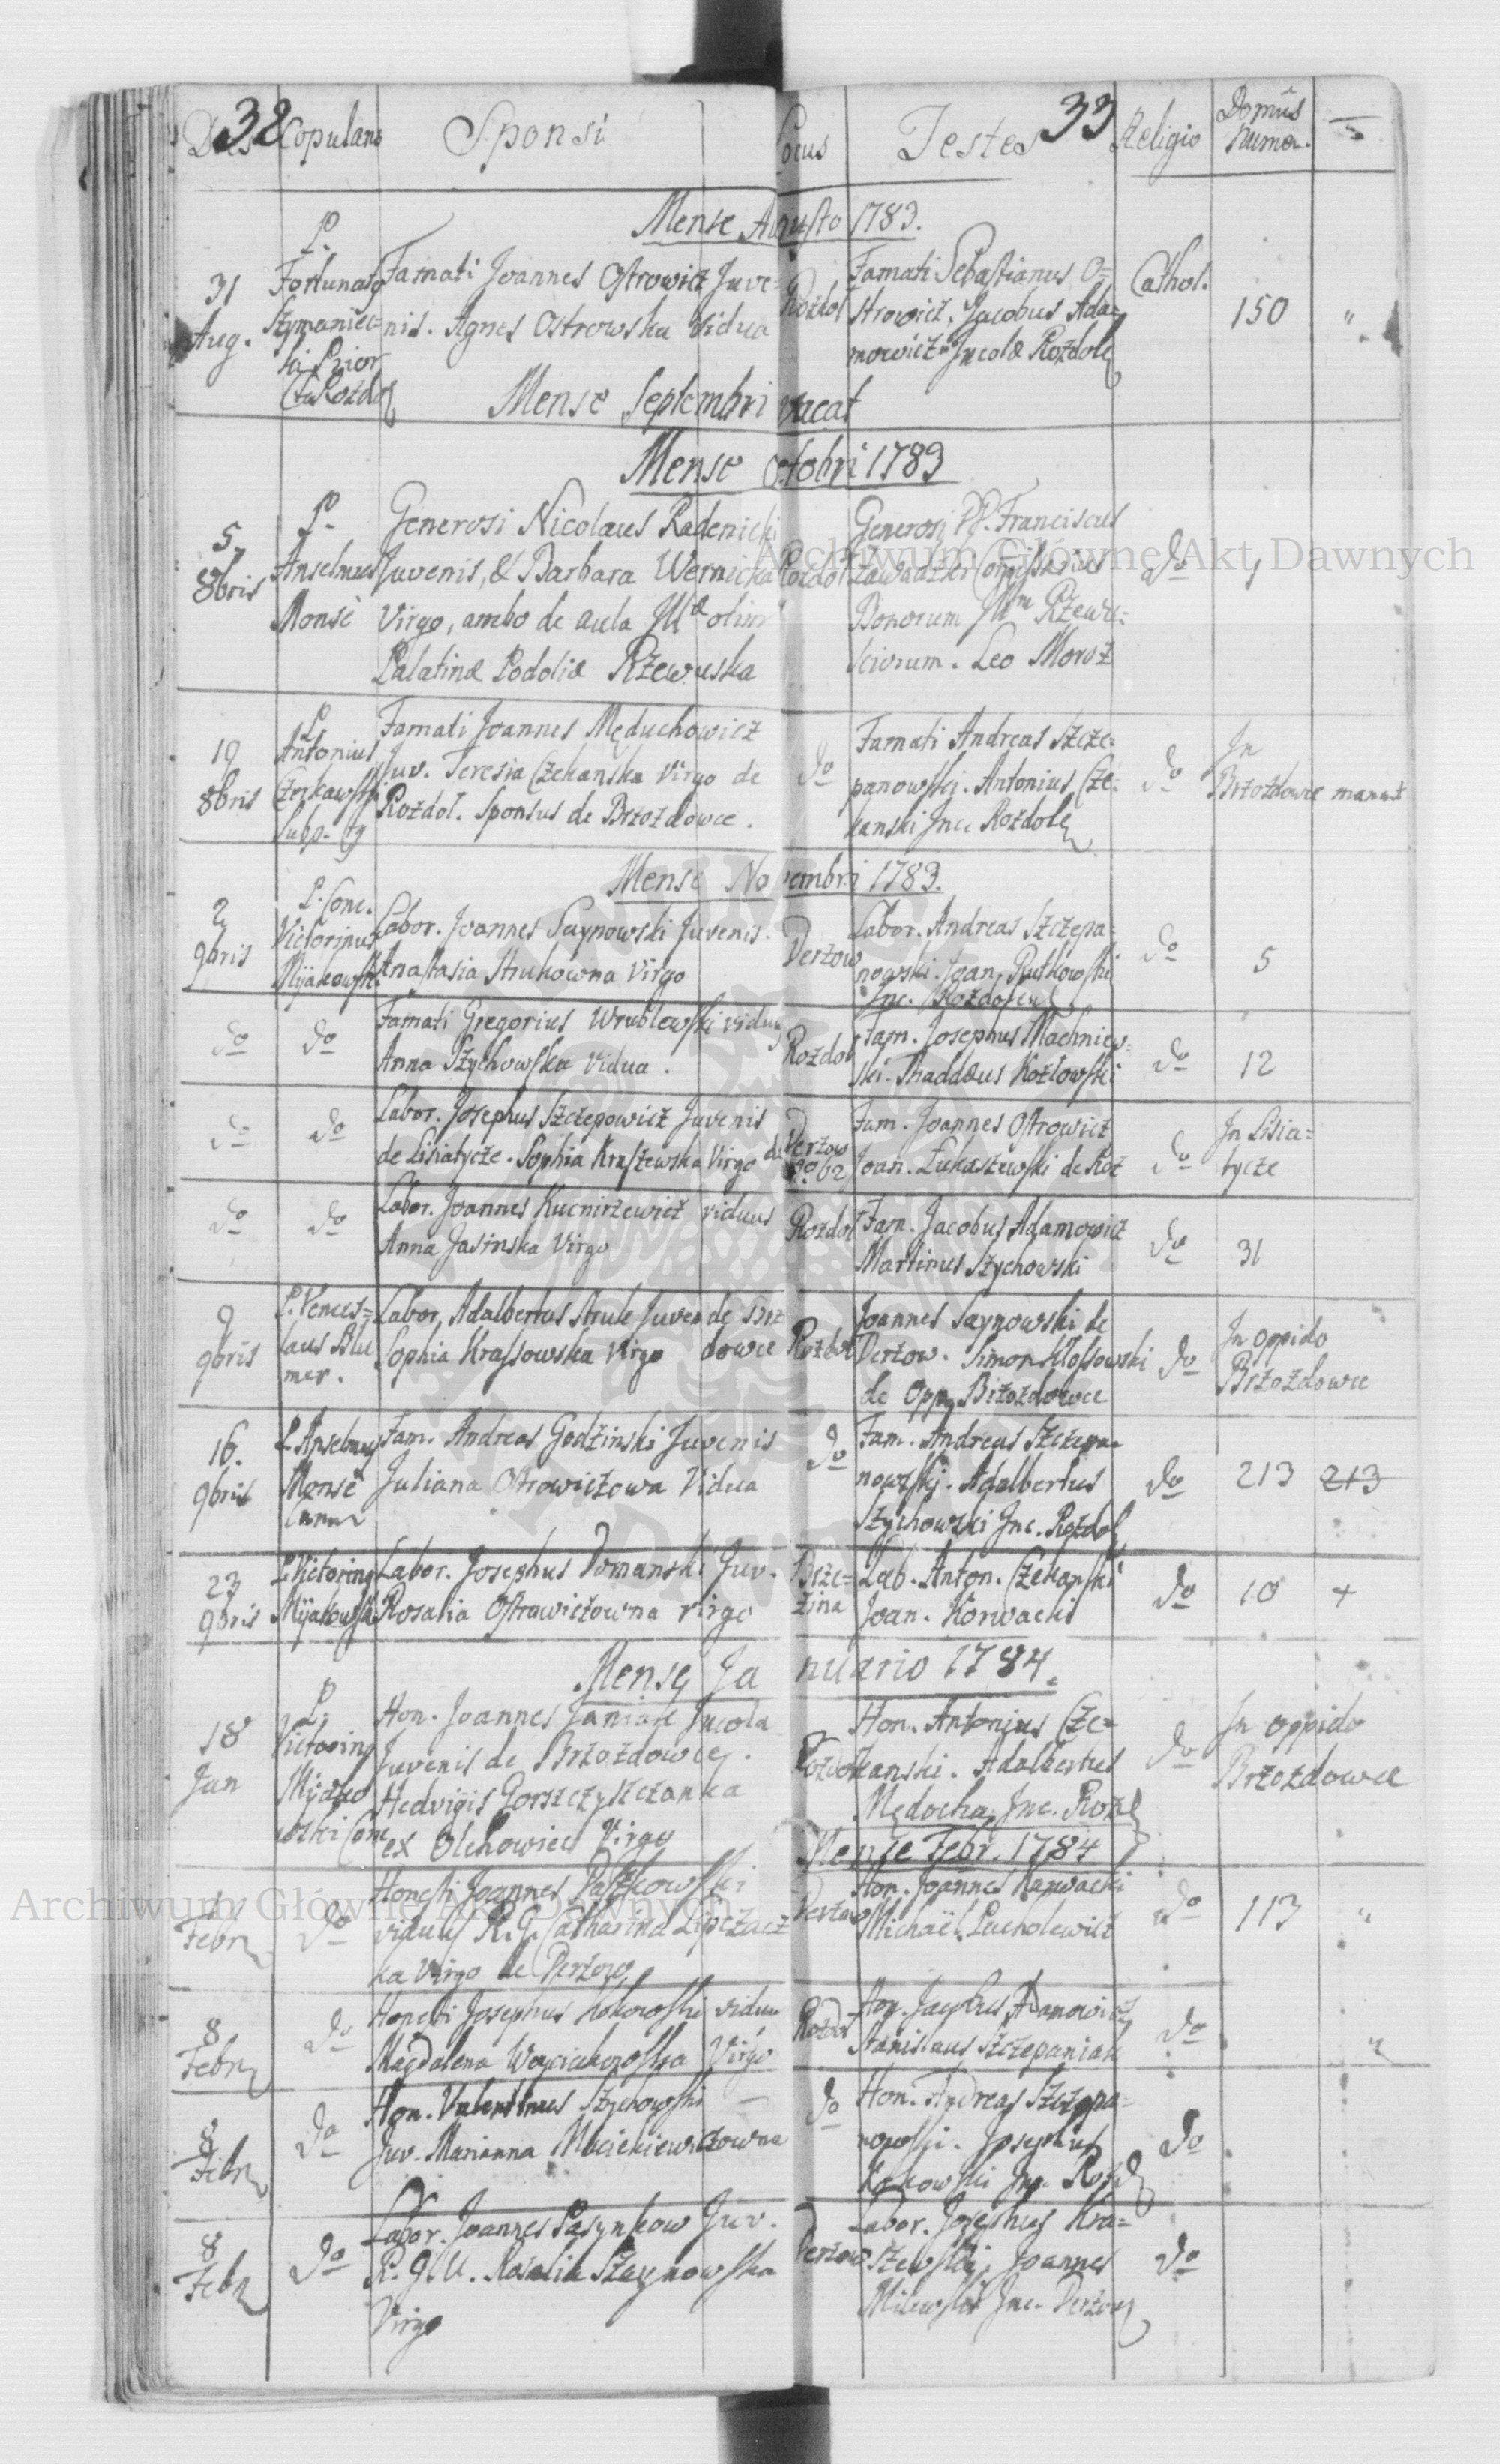 32 33
Dies Copulans Sponsi Locus Testes Religio Domûs Numer.
Mense Augusto 1783.
31 Aug.
P. Fortunatg
Szymaniec=
ki Prior
Rozdol
Famati Joannes Ostrowicz Juve=
nis. Agnes Ostrowska Vidua
Rozdol
Famati Sebastianus O=
strowicz, Jacobus Ada=
mowicz Incolæ Rozdolg
Cathol.
150 "
Mense Septembri vacat
Mense Octobri 1783
5
8bris
P.
Anselmus
Monsé
Generosi Nicolaus Radenicki
Juvenis, & Barbara Wernicka
Virgo, ambo de aula Illæ olim
Palatinæ Podoliæ Rzewuska
Rozdol
Generosi PP. Franciscus
Zawadzki Comissarius
Bonorum Illm Rzewu=
sciorum. Leo Moroz
do
1
19
8bris
P.
Antonius
Czerkawski
Subp.
Famati Joannes Męduchowicz
Juv. Teresia Czekanska Virgo de
Rozdol. Sponsus de Brzozdowce.
do
Famati Andreas Szcze=
panowski. Antonius Cze=
kanski Inc. Rozdol
do
In
Brzozdowce manent
Mense Novembri 1783.
2
9bris
P. Conc.
Victorinus
Mijakowski
Labor. Joannes Saynowski Juvenis.
Anastasia Strukowna Virgo
Derzow
Labor. Andreas Szczepa=
nowski. Joan. Rutkowski
Inc. Rozdol
do
5
do
do
Famati Gregorius Wrublewski viduus
Anna Szychowska Vidua.
Rozdol
Fam. Josephus Machniew=
ski. Thaddæus Kozlowski
do
12
do
do
Labor. Josephus Szczepowicz Juvenis
de Lisiatycze. Sophia Kraszewska Virgo de
Derzow
No 62
Fam. Joannes Ostrowicz
Joan. Łukaszewski de Roz
do
In Lisia=
tycze
do
do
Labor. Joannes Kucnirzewicz viduus
Anna Jasinska Virgo
Rozdol
Fam. Jacobus Adamowicz
Martinus Szychowski
do
31
9
9bris
P. Vences=
laus Blu
mer.
Labor. Adalbertus Struk Juven de Brz
Sophia Krassowska Virgo dowce
Rozdol
Joannes Saynowski de
Derzow. Simon Klossowski
de Opp. Brzozdowce
do
In oppido
Brzozdowce
16.
9bris
P. Anselmus
Monsé
Fam. Andreas Godzinski Juvenis
Juliana Ostrowiczowa Vidua
do
Fam. Andreas Szczepa=
nowski. Adalbertus
Szychowski Inc. Rozdol
do
213 213
23
9bris
P. Victoring
Mijakowski
Labor. Josephus Domanski Juv.
Rosalia Ostrowiczowna virgo
Brze=
zina
Lab. Anton. Czekanski
Joan. Korwacki
do
10 +
Mense Januario 1784.
18
Jan
P.
Victoring
Mijako
wski Conc
Hon. Joannes Janiak Incola
Juvenis de Brzozdowce.
Hedvigis Gorszczyszczanka
ex Olchowiec Virgo
Rozdol
Hon. Antonius Cze=
kanski. Adalbertus
Mędocha Inc. Rozd
do
In oppido
Brzozdowce
Mense Febr. 1784
Febr
do
Honesti Joannes Paszkowski
viduus R.G. Catharina Lipczac
ka Virgo de Derzow
Derzow
Hon. Joannes Karwacki
Michaël Pacholewicz
do
113 "
8
Febr
do
Honesti Josephus Kokowski vidu
Magdalena Woyciakowska Virgo
Rozdol
Hon. Jacobus Adamowicz
Stanislaus Szczepaniak
do
"
8
Febr
do
Hon. Valentinus Szychowski
Juv. Marianna Maciekiewiczowna
do
Hon. Andreas Szczepa=
nowski. Josephus
Kokowski Inc. Rozd
do
8
Febr
do
Labor. Joannes Pasynkow Juv.
R. G. U. Rosalia Szaynowska
Virgo
Derzow
Labor. Josephus Kra=
szewski, Joannes
Milewski Inc. Derzow
do
Archiwum Główne Akt Dawnych
Archiwum Główne Akt Dawnych